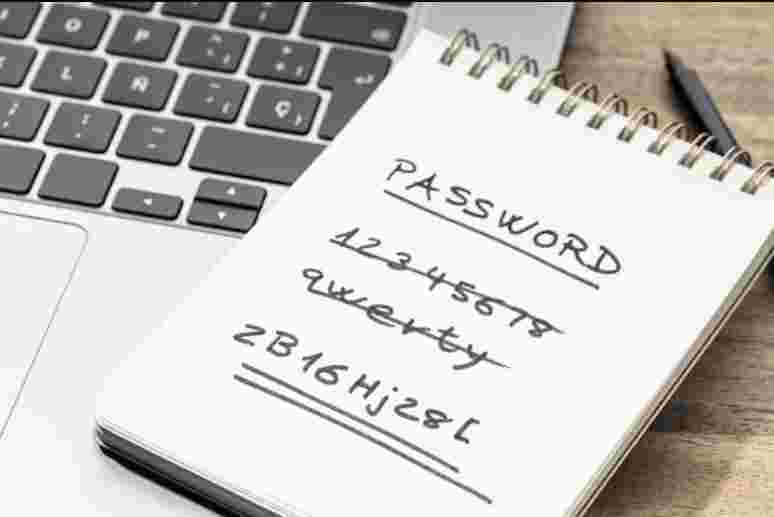 O P
L Ñ
Ç
PASSWORD
12345678
qwerty
2B16Hj28[